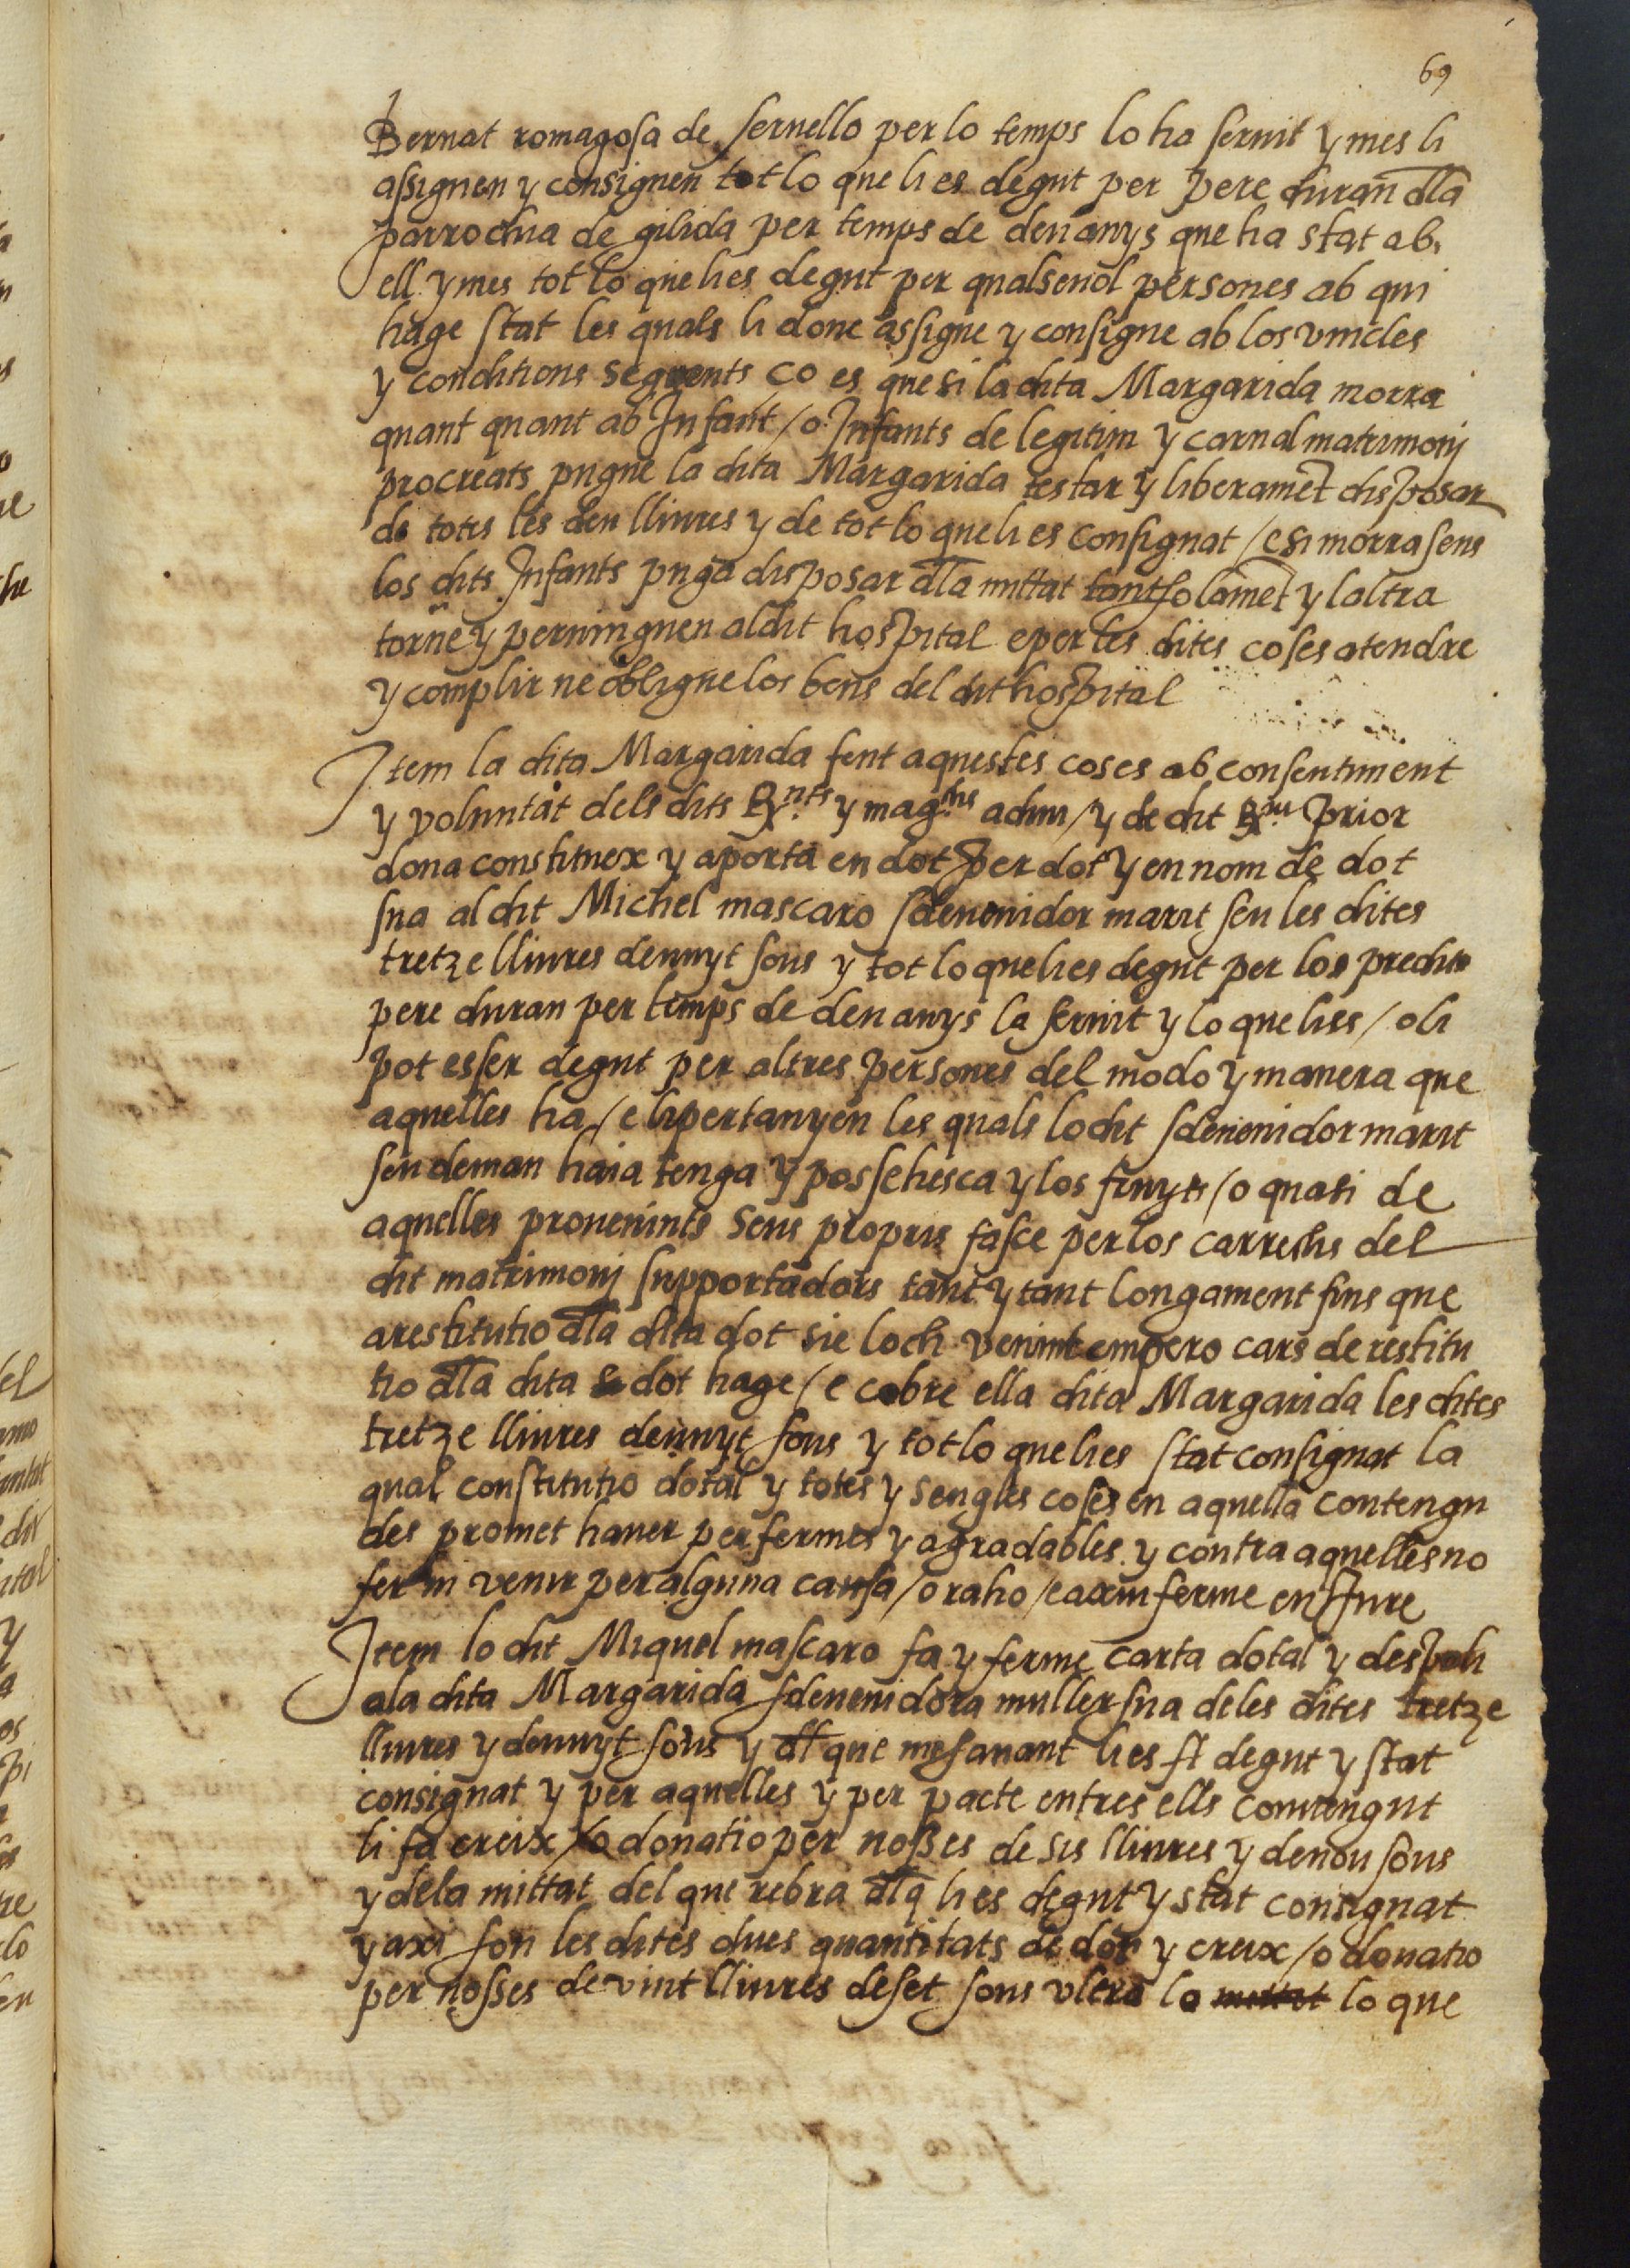 69
Bernat romagosa de servello per lo temps lo ha servit y mes li
assignen y consignen tot lo que li es degut per pere duran dla
parrochia de gilida per temps de deu anys que ha stat ab
ell y mes tot lo que li es degut per qualsevol persones ab qui
hage stat les quals li done assigne y consigne ab los vincles
y conditions seguents ço es que si la dita Margarida morra
quant quant ab Infant / o Infants de legitim y carnal matrimonj
procreats pugue la dita Margarida testar y liberamet disposar
de totes les deu lliures y de tot lo que li es consignat / e si morra sens
los dits Infants puga disposar dla mittat tant solamet y laltra
torne y pervinguen al dit hospital e per les dites coses atendre
y complir ne obligue los bens del dit hospital
Item la dita Margarida fent aquestes coses ab consentiment
y voluntat dels dits Rnts y magchs adm / y de dit Rm Prior
dona constituex y aporta en dot per dot y en nom de dot
sua al dit Michel mascaro sdevenidor marit seu les dites
tretze lliures devuyt sous y tot lo que li es degut per los predits
pere duran per temps de deu anys la servit y lo que li es / o li
pot esser degut per altres persones del modo y manera que
aquelles ha / e li pertanyen les quals lo dit sdevenidor marit
seu deman haia tenga y possehesca y los fruyts / o quasi de
aquelles provenints seus propris fasce per los carrechs del
dit matrimonj supportadors tant y tant longament fins que
a restitutio dla dita dot sie loch venint empero cars de restitu
tio dla dita dot hage / e cobre ella dita Margarida les dites
tretze lliures devuyt sous y tot lo que li es stat consignat la
qual constitutio dotal y totes y sengles coses en aquella contengu
des promet haver per fermes y agradables y contra aquelles no
fer ni venir per alguna causa / o raho / e axi u ferme en Jure
Item lo dit Miquel mascaro fa y ferme carta dotal y despoli
a la dita Margarida sdevenidora muller sua de les dites tretze
lliures y devuyt sous y dl que mes avant li es st degut y stat
consignat y per aquelles y per pacte entres ells convengut
li fa creix / o donatio per nosses de sis lliures y denou sous
y de la mittat del que rebra dlq li es degut y stat consignat
y axi son les dites dues quantitats de dot y creix / o donatio
per nosses de vint lliures deset sous ultra lo mittat lo que